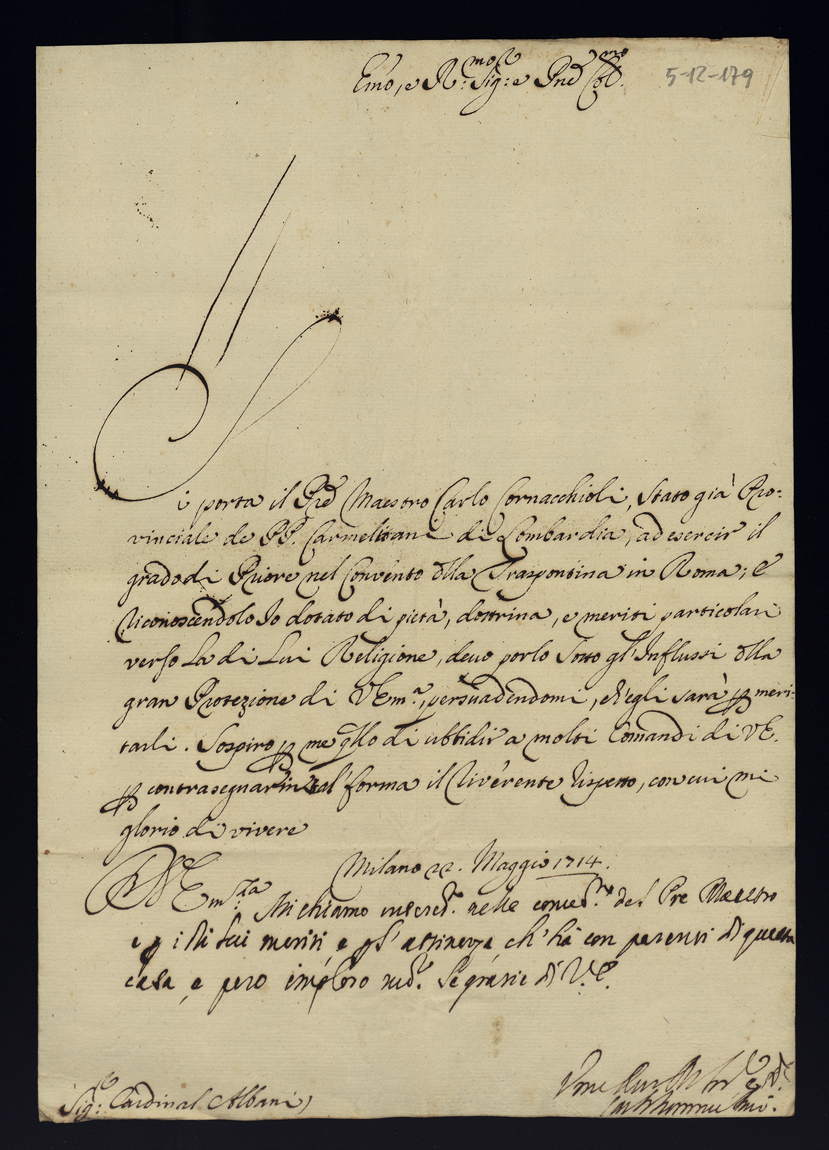 Emo, e R:mo Sig: e Pne Col.mo
5-12-179
Si porta il Pre Maestro Carlo Cornacchioli, stato già Pro-
vinciale de PP. Carmelitani di Lombardia, ad esercir il
grado di Priore nel Convento dlla Traspontina in Roma; E
riconoscendolo Io dotato di pietà, dottrina, e meriti particolari
verso La di Lui Religione, devo porlo sotto gl'Influssi dlla
gran Protezione di VEma, persuadendomi, ch'egli sarà p meri-
tarli. Sospiro p me qllo di ubbidir a molti Comandi di VE.
p contrasegnar in tal forma il riverente rispetto, con cui mi
glorio di vivere
Milano 22. Maggio 1714.
D V Emza Mi chiamo intered. nelle del Pre Maestro
e p i di lui meriti e p l'attinenza ch'hà con parenti di questa
casa, e però imploro le grazie di V.E.
Sig: Cardinal Albani